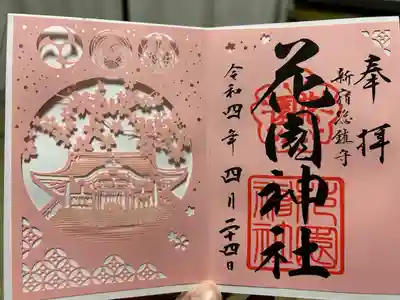 奉拝
新宿総鎮守
花園神社
令和四年四月二十四日